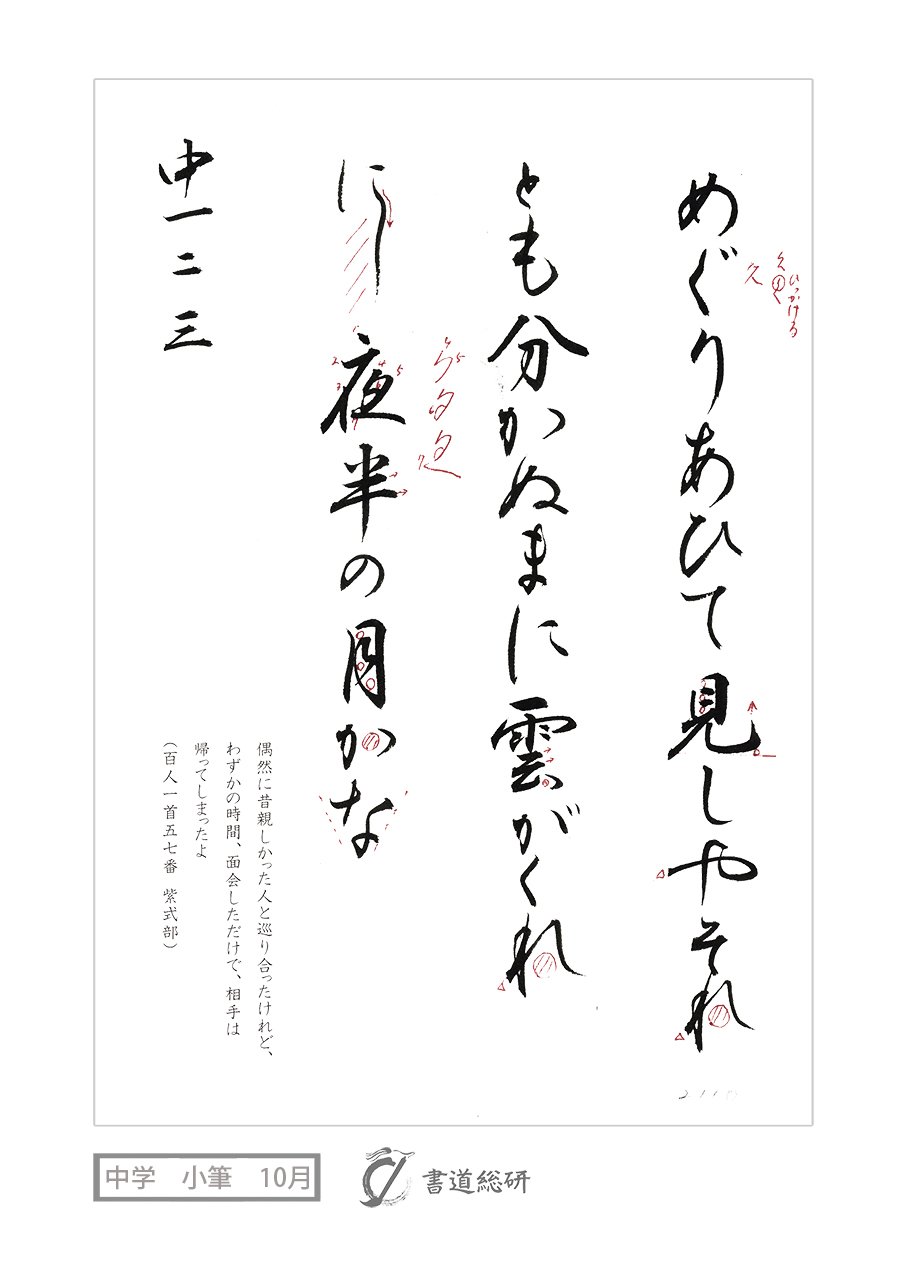 めぐりあひて見しやそれ
ひっかける
とも分かぬまに雲がくれ
にし夜半の月かな
中一二三
偶然に昔親しかった人と巡り合ったけれど、
わずかの時間、面会しただけで、相手は
帰ってしまったよ
(百人一首五七番 紫式部)
中学 小筆 10月
書道総研